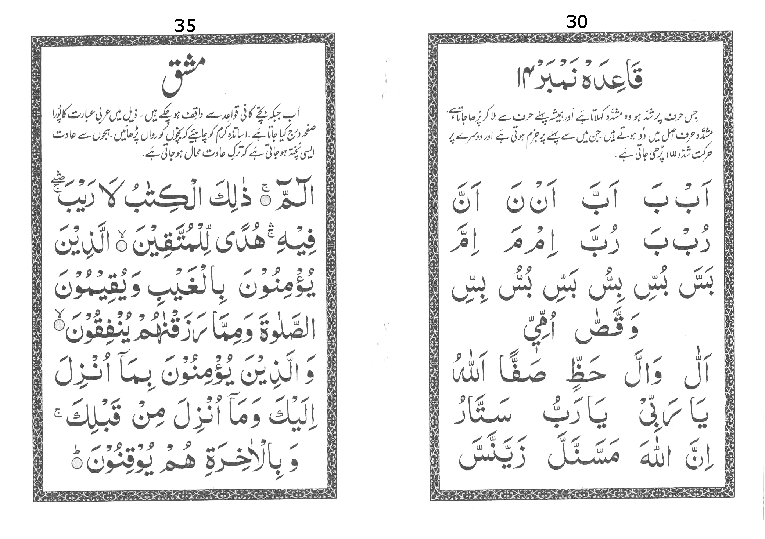 30
قَاعِدَہ نَمبَر ۱۴
جس حرف پر شد ہو وہ مشدّد کہلاتا ہے اور ہمیشہ پہلے حرف سے ملا کر پڑھا جاتا ہے۔
مشدّد حرف اصل میں دو ہوتے ہیں جن میں سے پہلے پر جزم ہوتی ہے اور دوسرے پر
حرکت پڑھی جاتی ہے۔
اَبْ بَ اَبَّ اَنْ نَ اَنَّ
رُبْ بَ رُبَّ اِمْ مَ اِمَّ
بَسَّ بُسِّ بِسُّ بَسِّ بُسُّ بِسِّ
اَلّٰ وَالَّ حَظٍّ صَفًّا اَللّٰهُ
يَا رَبِّیْ يَا رَبُّ سَتَّارُ
اِنَّ اللّٰهَ
35
مشق
اب جبکہ بچّے کافی قواعد سے واقف ہو چکے ہیں۔ ذیل میں عربی عبارت کا پورا
صفحہ درج کیا جاتا ہے۔ اساتذہ کرام کو چاہیئے کہ بچوں کو رواں پڑھائیں۔ ہجوں سے عادت
ایسی پختہ ہو جاتی ہے کہ ترکِ عادت محال ہو جاتی ہے۔
الٓمّٓ ۚ ذٰلِكَ الْكِتٰبُ لَا رَيْبَ ۛ
فِيْهِ ۛ هُدًى لِّلْمُتَّقِيْنَ ۙ الَّذِيْنَ
يُؤْمِنُوْنَ بِالْغَيْبِ وَيُقِيْمُوْنَ
الصَّلٰوةَ وَمِمَّا رَزَقْنٰهُمْ يُنْفِقُوْنَ ۙ
وَالَّذِيْنَ يُؤْمِنُوْنَ بِمَآ اُنْزِلَ
اِلَيْكَ وَمَآ اُنْزِلَ مِنْ قَبْلِكَ ۚ
وَبِالْاٰخِرَةِ هُمْ يُوْقِنُوْنَ ؕ